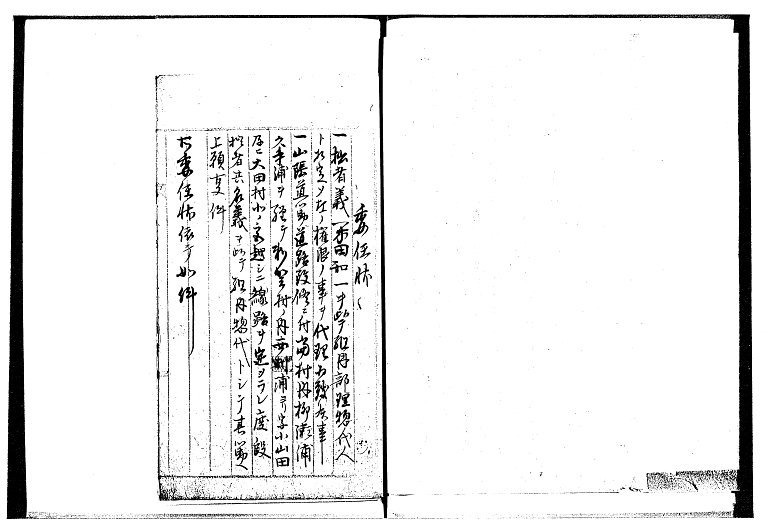 委任状
一拙者義 市田和一 ヲ以テ組内部理惣代人
ト相定メ左ノ権限ノ事ヲ代理為致候事
一山陰道筋道路改修ニ付当村内柳瀬浦
久手浦ヲ経テ 村ノ内 浦ヨリ字小山田
及ヒ大田村小ノ 越シニ線路ヲ定メラレ度段
拙者共名義ヲ以テ組内惣代トシテ其筋ヘ
上願支件
右委任状依テ如件